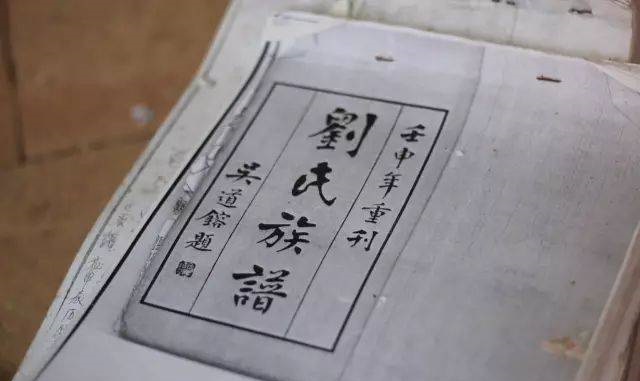 壬申年重刊
劉氏族譜
吳道鎔題